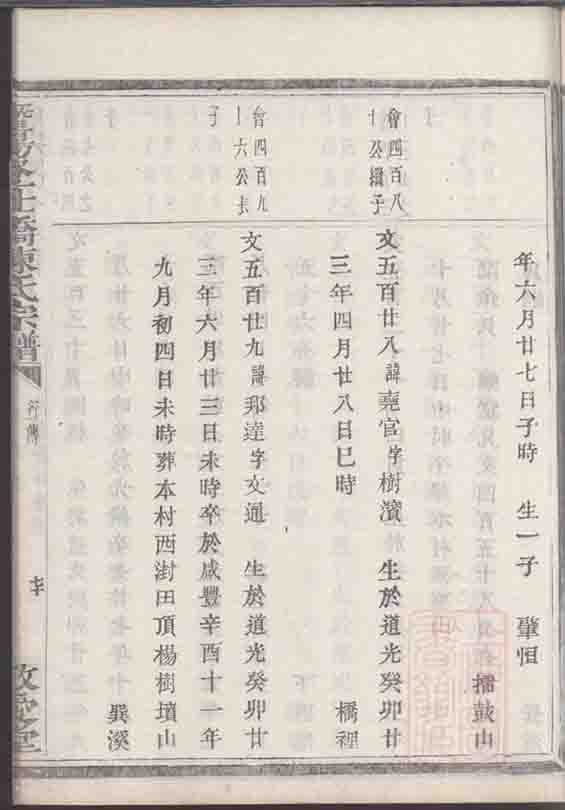 年六月廿七日子時 生一子 肇恒
擂鼓山
會四百八
十公繼子
文五百廿八諱堯官字樹濱 生於道光癸卯廿
三年四月廿八日巳時 橋裡
會四百九
十六公長
子
文五百廿九諱邦達字文通 生於道光癸卯廿
三年六月廿三日未時卒於咸豐辛酉十一年
九月初四日未時葬本村西澍田頂楊樹墳山
巽溪
橋陳氏宗譜 行傳